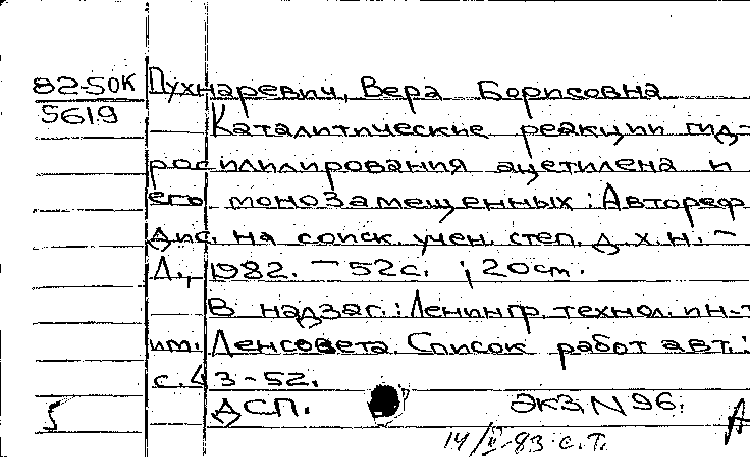 82-50К Пухнаревич, Вера Борисовна
5619 Каталитические реакции гид-
росилилирования ацетилена и
его монозамещенных : Автореф
Дис. на соиск. учен. степ. д. х. н. –
Л., 1982. – 52с. ; 20см.
В надзаг. : Ленингр. технол. ин-т
им. Ленсовета. Список работ авт. :
с. 43-52.
ДСП. Экз. N 96.
14/II-83 с.т.